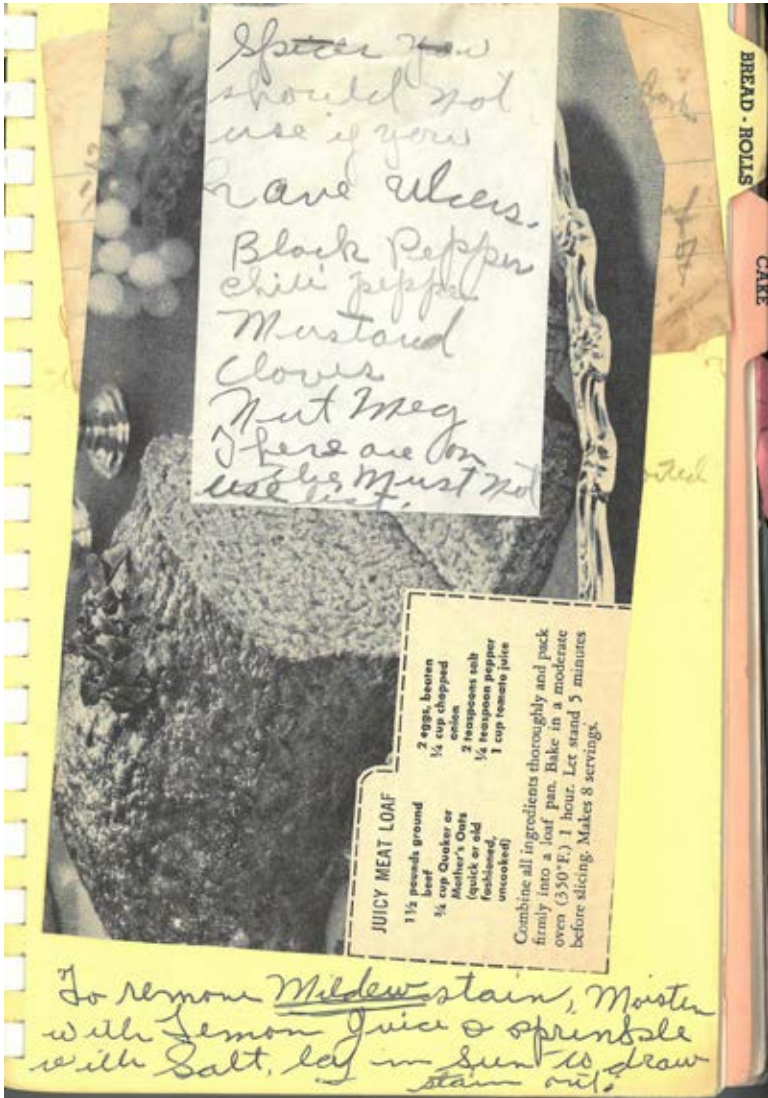 Spices you
should not
use if you
have ulcers.
Black Pepper
chili pepper
Mustard
Cloves
Nut Meg
There are on
the Must Not
use list.
BREAD - ROLLS
CAKE
JUICY MEAT LOAF
1½ pounds ground
beef
¾ cup Quaker or
Mother's Oats
(quick or old
fashioned,
uncooked)
2 eggs, beaten
¼ cup chopped
onion
2 teaspoons salt
¼ teaspoon pepper
1 cup tomato juice
Combine all ingredients thoroughly and pack
firmly into a loaf pan. Bake in a moderate
oven (350°F.) 1 hour. Let stand 5 minutes
before slicing. Makes 8 servings.
To remove Mildew stain, Moisten
with Lemon Juice & sprinkle
with Salt, lay in Sun to draw
stain out.